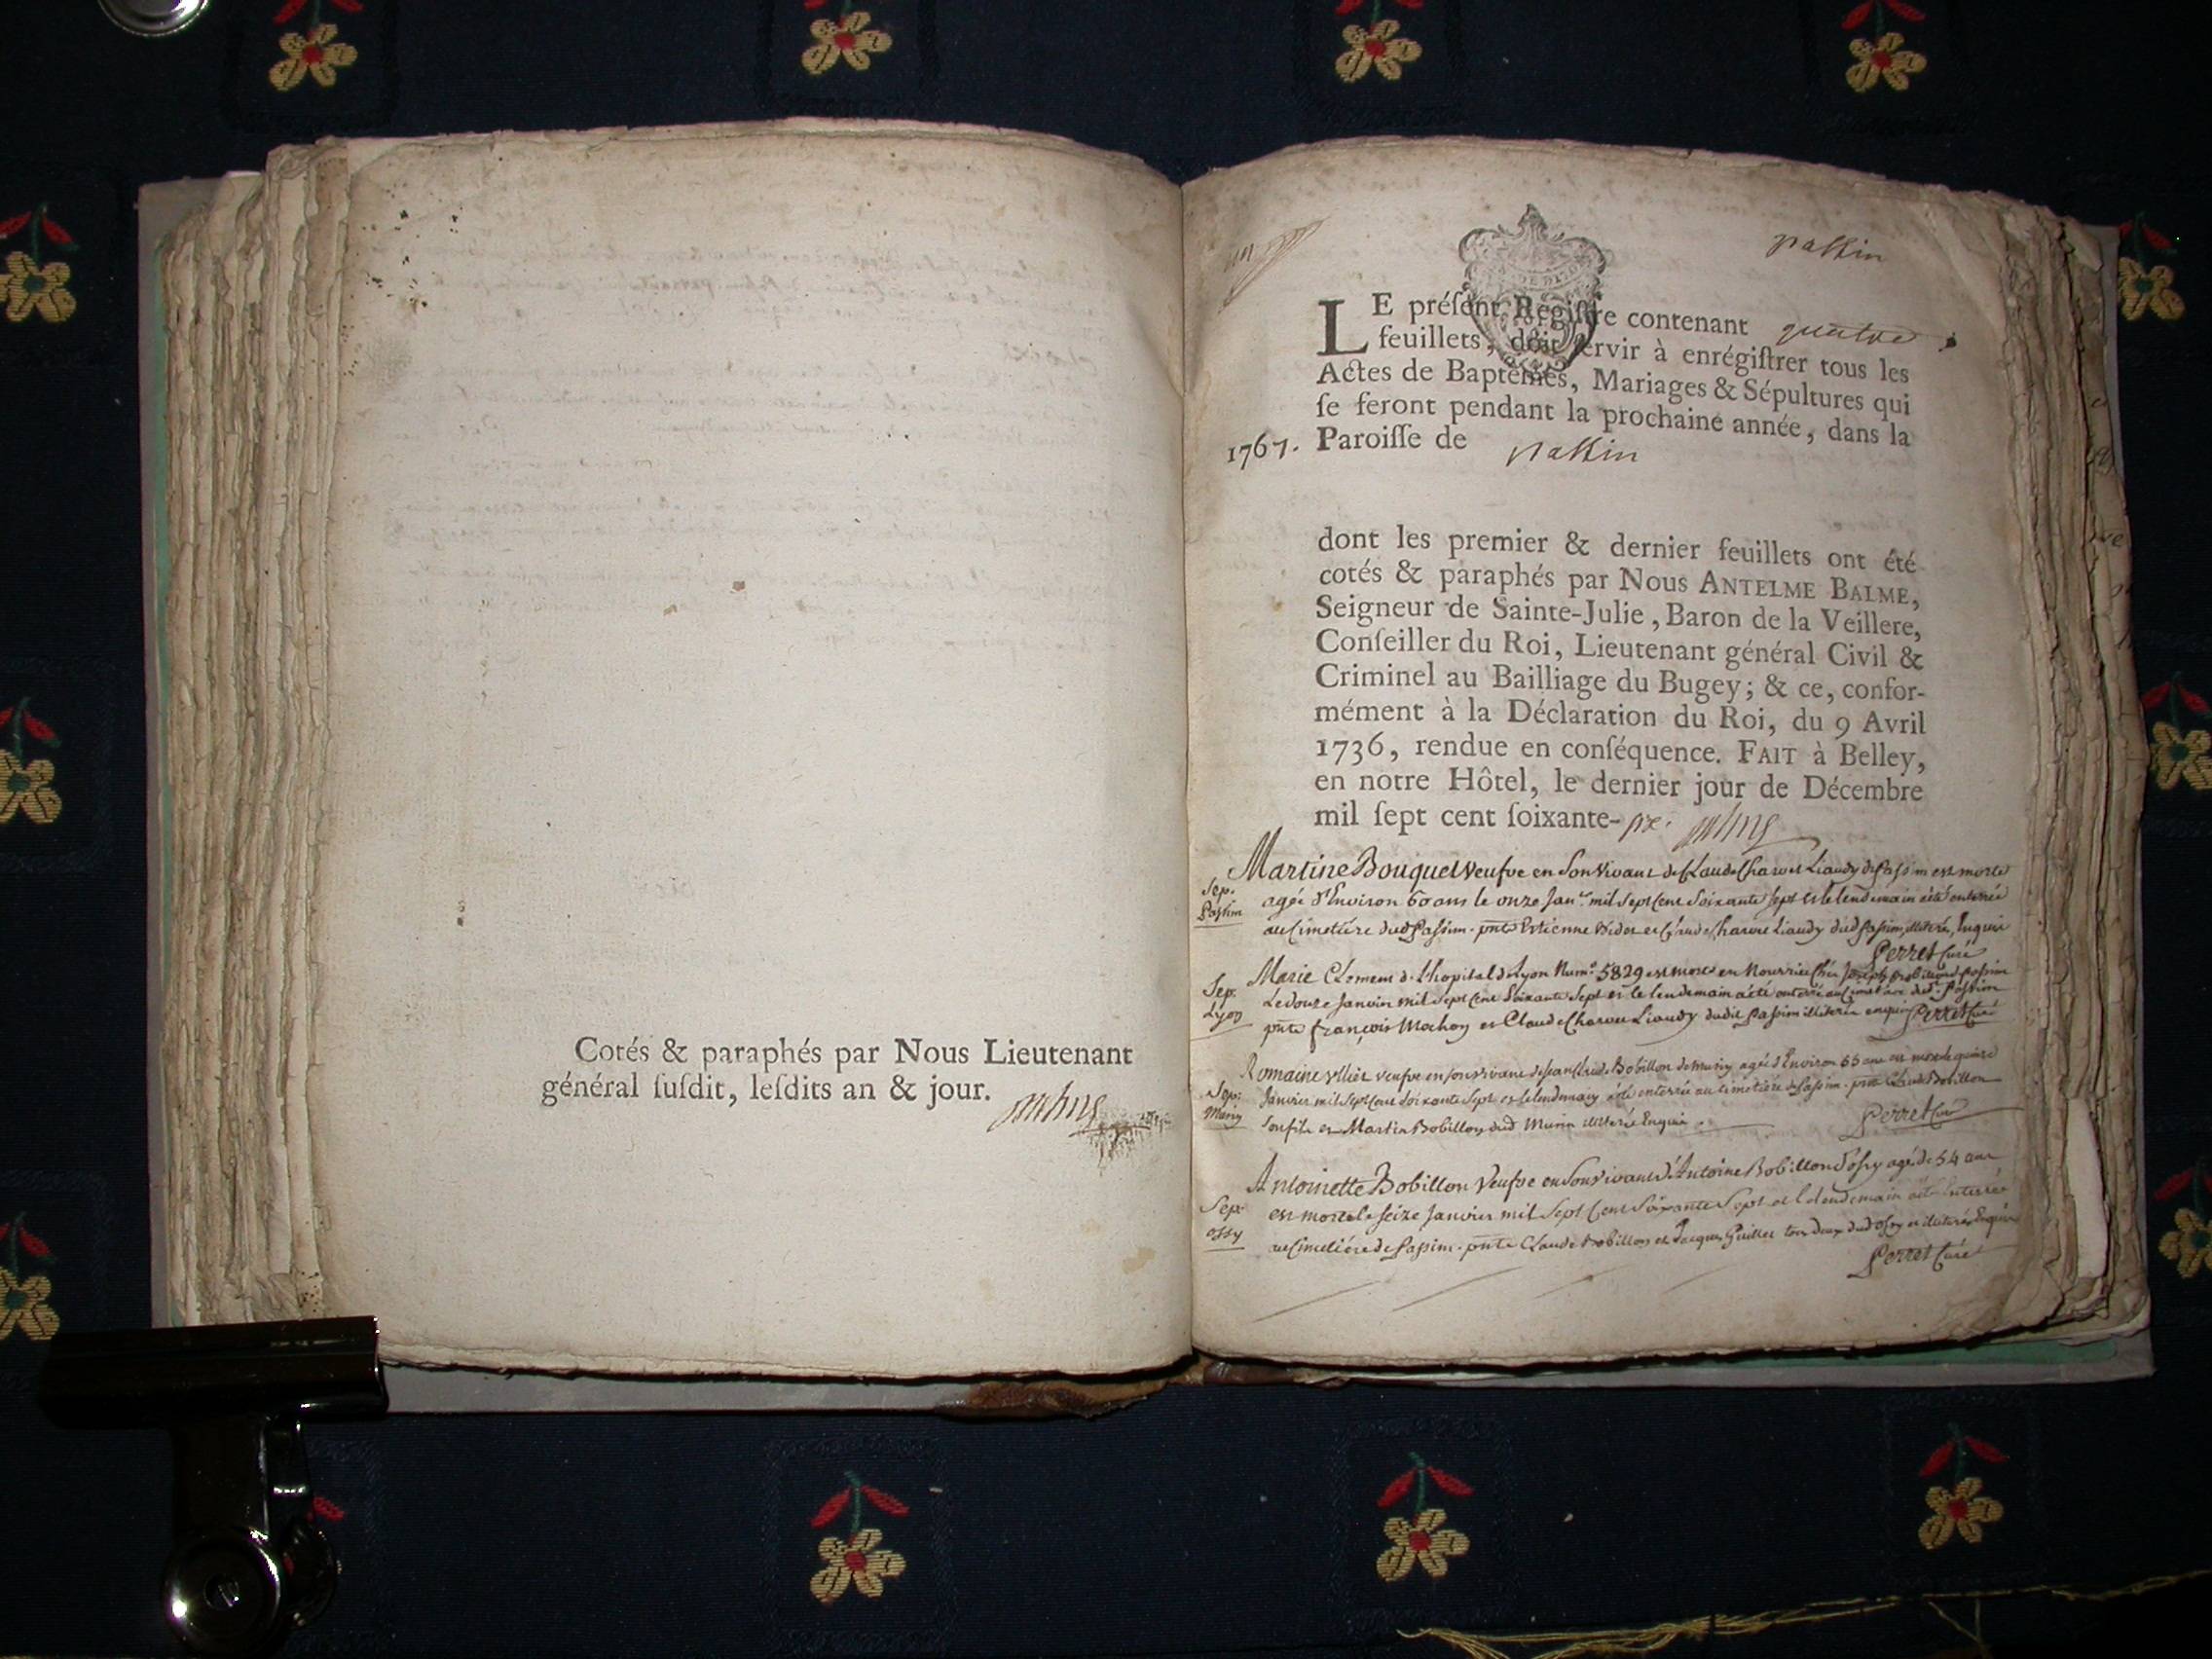 Cotés & paraphés par Nous Lieutenant
général ſuſdit, leſdits an & jour.
passin
LE préſent Regiſtre contenant quatre
feuillets, doit ſervir à enrégiſtrer tous les
Actes de Baptêmes, Mariages & Sépultures qui
ſe feront pendant la prochaine année, dans la
1767. Paroiſſe de passin
dont les premier & dernier feuillets ont été
cotés & paraphés par Nous ANTELME BALME,
Seigneur de Sainte-Julie, Baron de la Veillere,
Conſeiller du Roi, Lieutenant général Civil &
Criminel au Bailliage du Bugey; & ce, confor-
mément à la Déclaration du Roi, du 9 Avril
1736, rendue en conſéquence. FAIT à Belley,
en notre Hôtel, le dernier jour de Décembre
mil ſept cent ſoixante-six.
Martine Bouquet Veufve en son vivant de Claude Charvet Liaudy de Passim est morte
Sep. Passim
agée d'Environ 60 ans le onze Janr. mil Sept Cent Soixante sept et le lendemain a été enterrée
au Cimetière dud Passim. pnts Estienne et Claude Charvet Liaudy dud Passim, illiterés, Enquis
Perret Curé
Marie Clement de L'hopital de Lyon Num.o 5829 est morte en Nourrice Chés Joseph Bobillon de Passim
Sep. Lyon
Le douze Janvier mil Sept Cent Soixante Sept et le lendemain a été enterrée au Cimetière dud. Passim
pnts françois Mochon et Claude Charvet Liaudy dudit Passim illiterés enquis Perret Curé
Romaine veufve en son vivant de Jean Claude Bobillon de Muny agée d'Environ 65 ans est morte le quinze
Sep. Muny
Janvier mil Sept Cent Soixante Sept et le lendemain a été enterrée au Cimetière de Passim. pnts Claude Bobillon
son fils et Martin Bobillon dud illiterés Enquis.
Perret Curé
Antoinette Bobillon Veufve en Son vivant d'Antoine Bobillon d'ossy agée de 54 ans
Sep. ossy
est morte le seize Janvier mil Sept Cent Soixante Sept et le lendemain a été Enterrée
au Cimetière de Passim. pnts Claude Bobillon et Jacques tous deux dud ossy et illiterés Enquis
Perret Curé